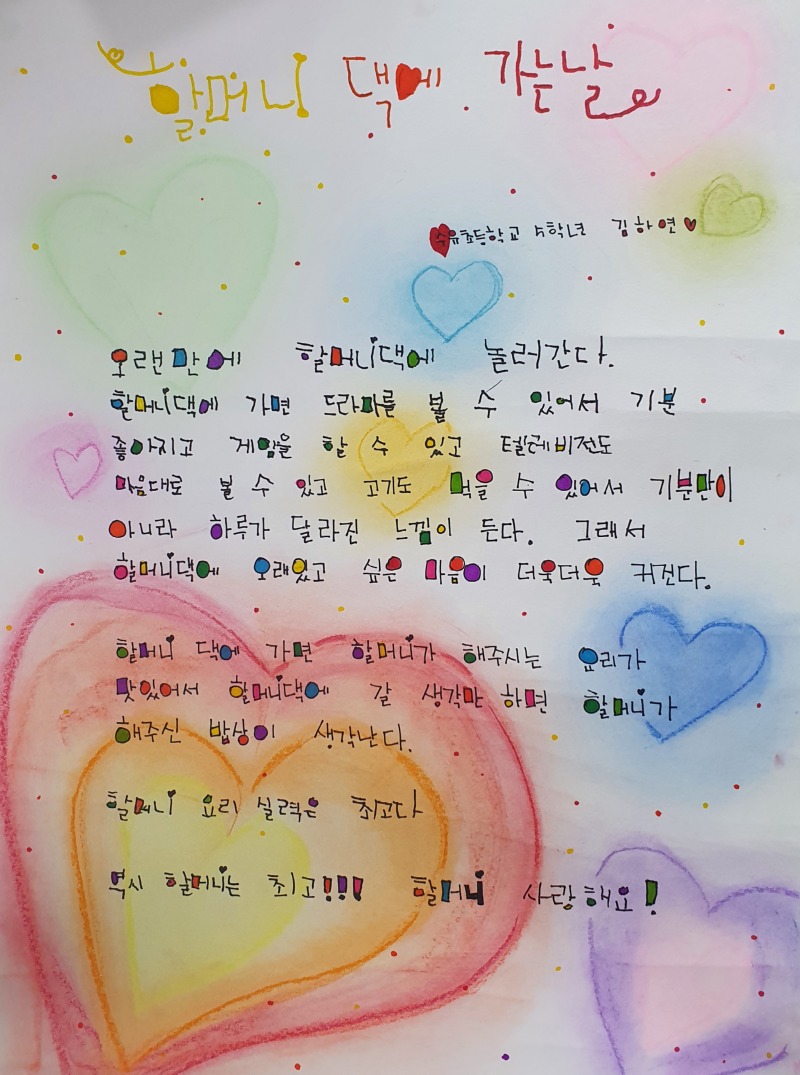 할머니 댁에 가는날
수유초등학교 4학년 김하연
오랜만에 할머니댁에 놀러간다.
할머니댁에 가면 드라마를 볼 수 있어서 기분
좋아지고 게임을 할 수 있고 텔레비전도
마음대로 볼 수 있고 고기도 먹을 수 있어서 기분만이
아니라 하루가 달라진 느낌이 든다. 그래서
할머니댁에 오래있고 싶은 마음이 더욱더욱 커진다.
할머니 댁에 가면 할머니가 해주시는 요리가
맛있어서 할머니댁에 갈 생각만 하면 할머니가
해주신 밥상이 생각난다.
할머니 요리 실력은 최고다
역시 할머니는 최고!!! 할머니 사랑해요!